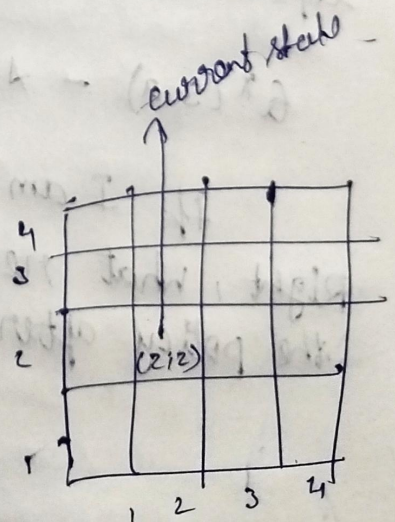 current state
4
3
2
(2,2)
1
1 2 3 4